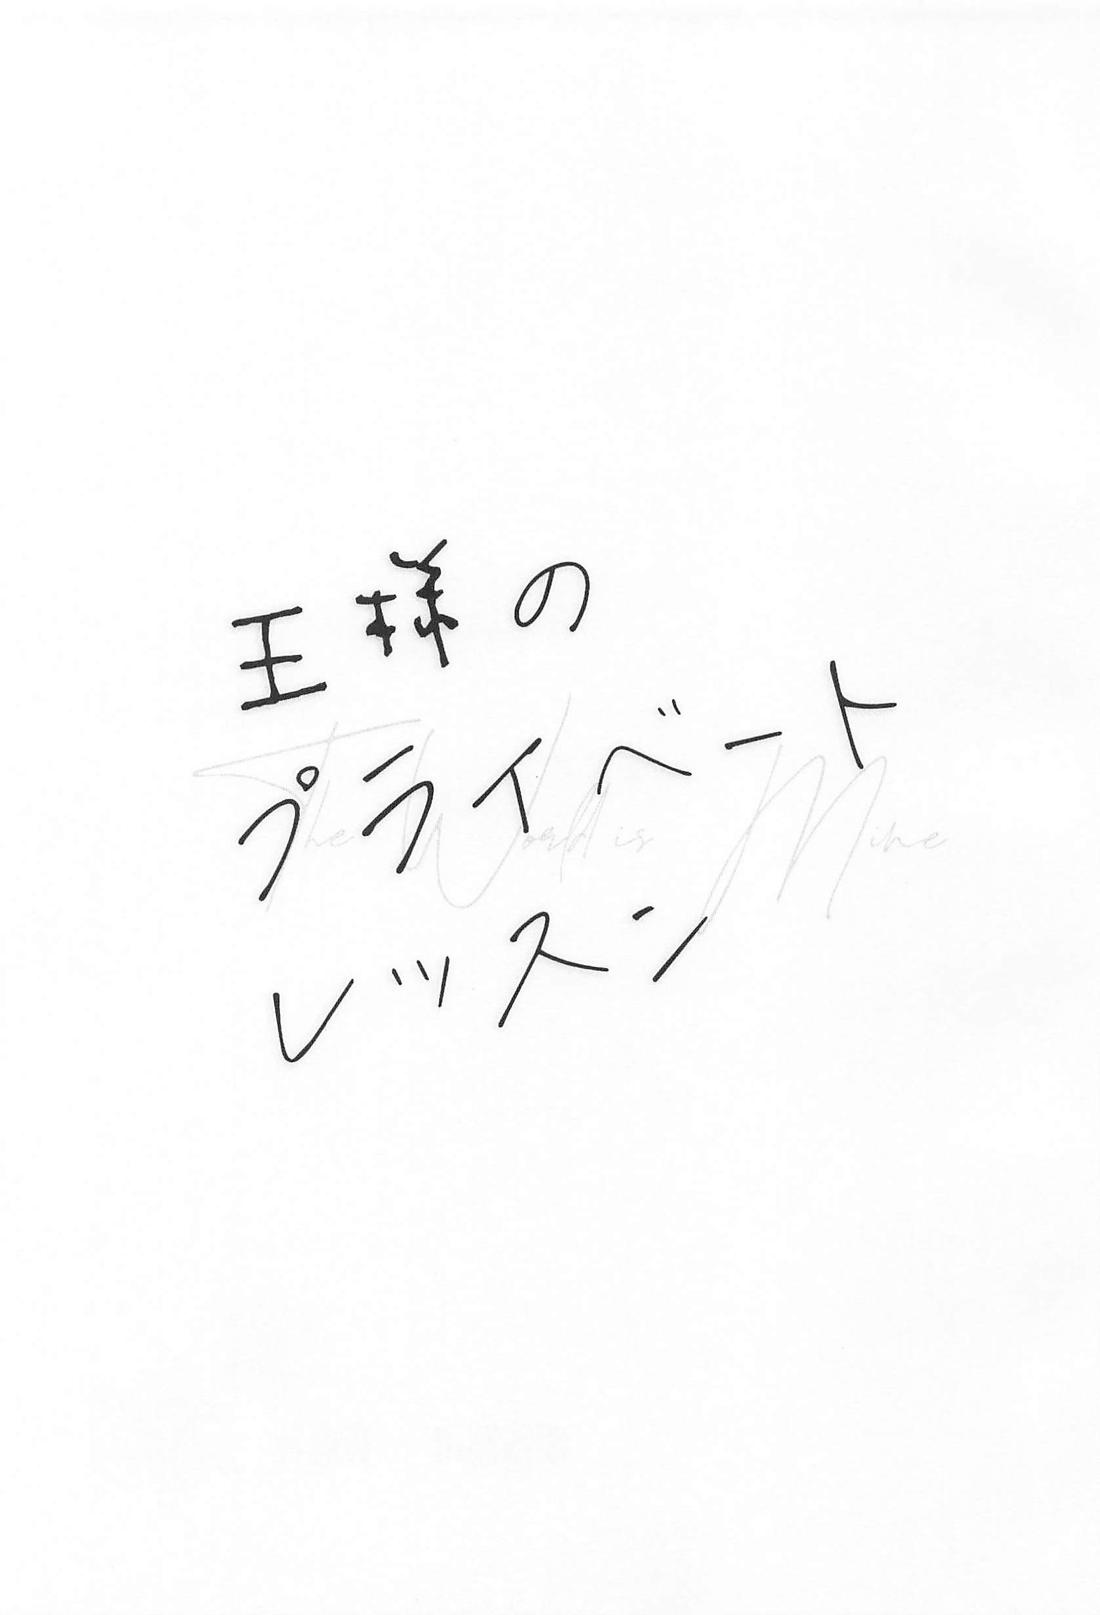 王様の
プライベート
The World is Mine
レッスン